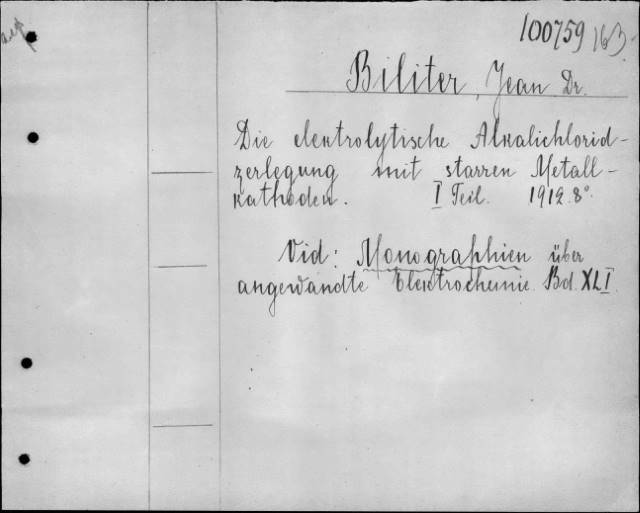 100759 163.
Biliter, Jean Dr.
Die elektrolytische Alkalichlorid-
zerlegung mit starren Metall-
kathoden. I Teil. 1912. 8°.
Vid: Monographien über
angewandte Elektrochemie. Bd. XLI.